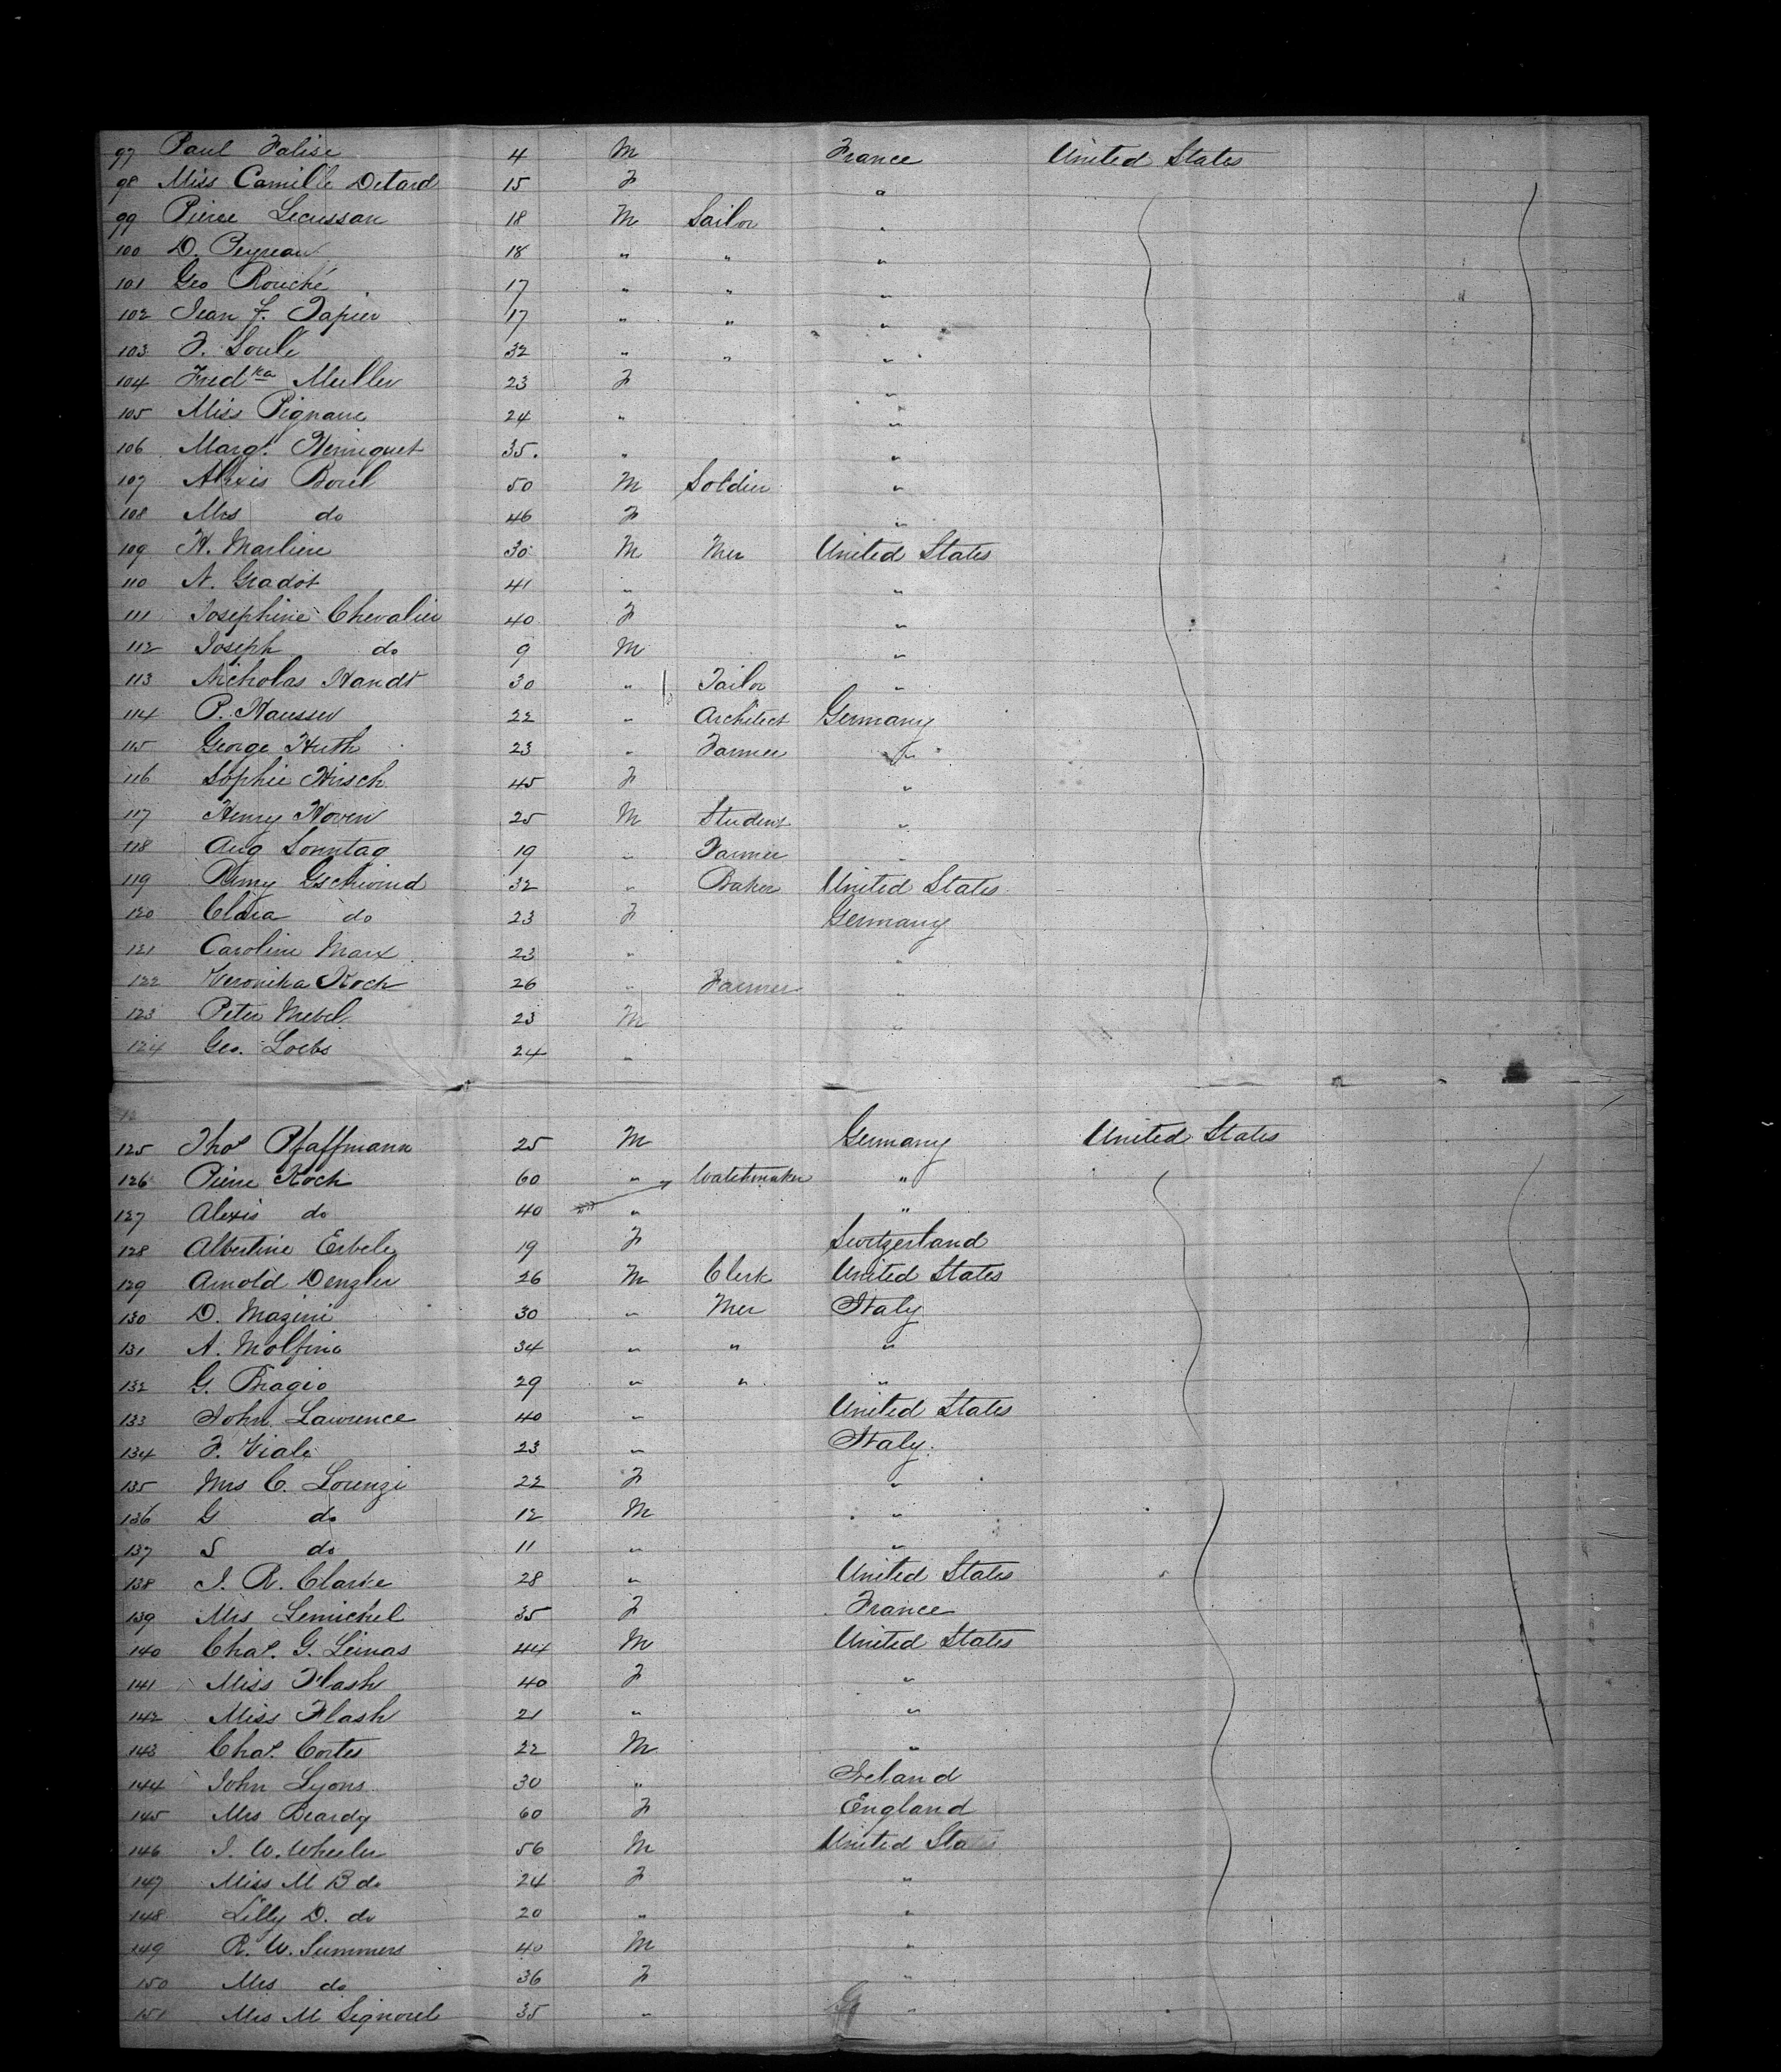 97 Paul Falise 4 M France United States
98 Miss Camille Detard 15 F "
99 Pierre Lecussan 18 M Sailor "
100 D. Peyreau 18 " " "
101 Geo Rouché 17 " " "
102 Jean F. Tapier 17 " " "
103 F. Soulé 32 " " "
104 Fredka Muller 23 F "
105 Miss Pignaue 24 " "
106 Margt. Henriquet 35. " "
107 Alexis Borel 50 M Soldier "
108 Mrs do 46 F "
109 H. Marliere 30 M Mer United States
110 N. Gradot 41 " "
111 Josephine Chevalier 40 F "
112 Joseph do 9 M "
113 Nicholas Handt 30 " Tailor "
114 P. Hausser 22 " Architect Germany
115 George Huth 23 " Farmer "
116 Sophie Hirsch 45 F "
117 Henry Hoven 25 M Student "
118 Aug Sonntag 19 " Farmer "
119 Remy Gschwind 32 " Baker United States
120 Clara do 23 F Germany
121 Caroline Marx 23 " "
122 Veronika Koch 26 " Farmer "
123 Peter Mebel 23 M "
124 Geo. Loebs 24 "
125 Thos Pfaffmann 25 M Germany United States
126 Pierre Koch 60 " Watchmaker "
127 Alexis do 40 " "
128 Albertine Erbele 19 F Switzerland
129 Arnold Denzler 26 M Clerk United States
130 D. Mazini 30 " Mer Italy
131 A. Molfino 34 " " "
132 G. Biagio 29 " " "
133 John Lawrence 40 " United States
134 F. Viale 23 " Italy.
135 Mrs C. Lorenzi 22 F "
136 G do 12 M "
137 S do 11 " "
138 J. R. Clarke 28 " United States
139 Mrs Lemichel 35 F France
140 Chas. G. Leinas 44 M United States
141 Miss Flash 40 F "
142 Miss Flash 21 " "
143 Chas. Cortes 22 M "
144 John Lyons 30 " Ireland
145 Mrs Beardy 60 F England
146 J. W. Wheeler 56 M United States
147 Miss M B do 24 F "
148 Lilly D. do 20 " "
149 R. W. Summers 40 M "
150 Mrs do 36 F "
151 Mrs M Signorel 35 " "